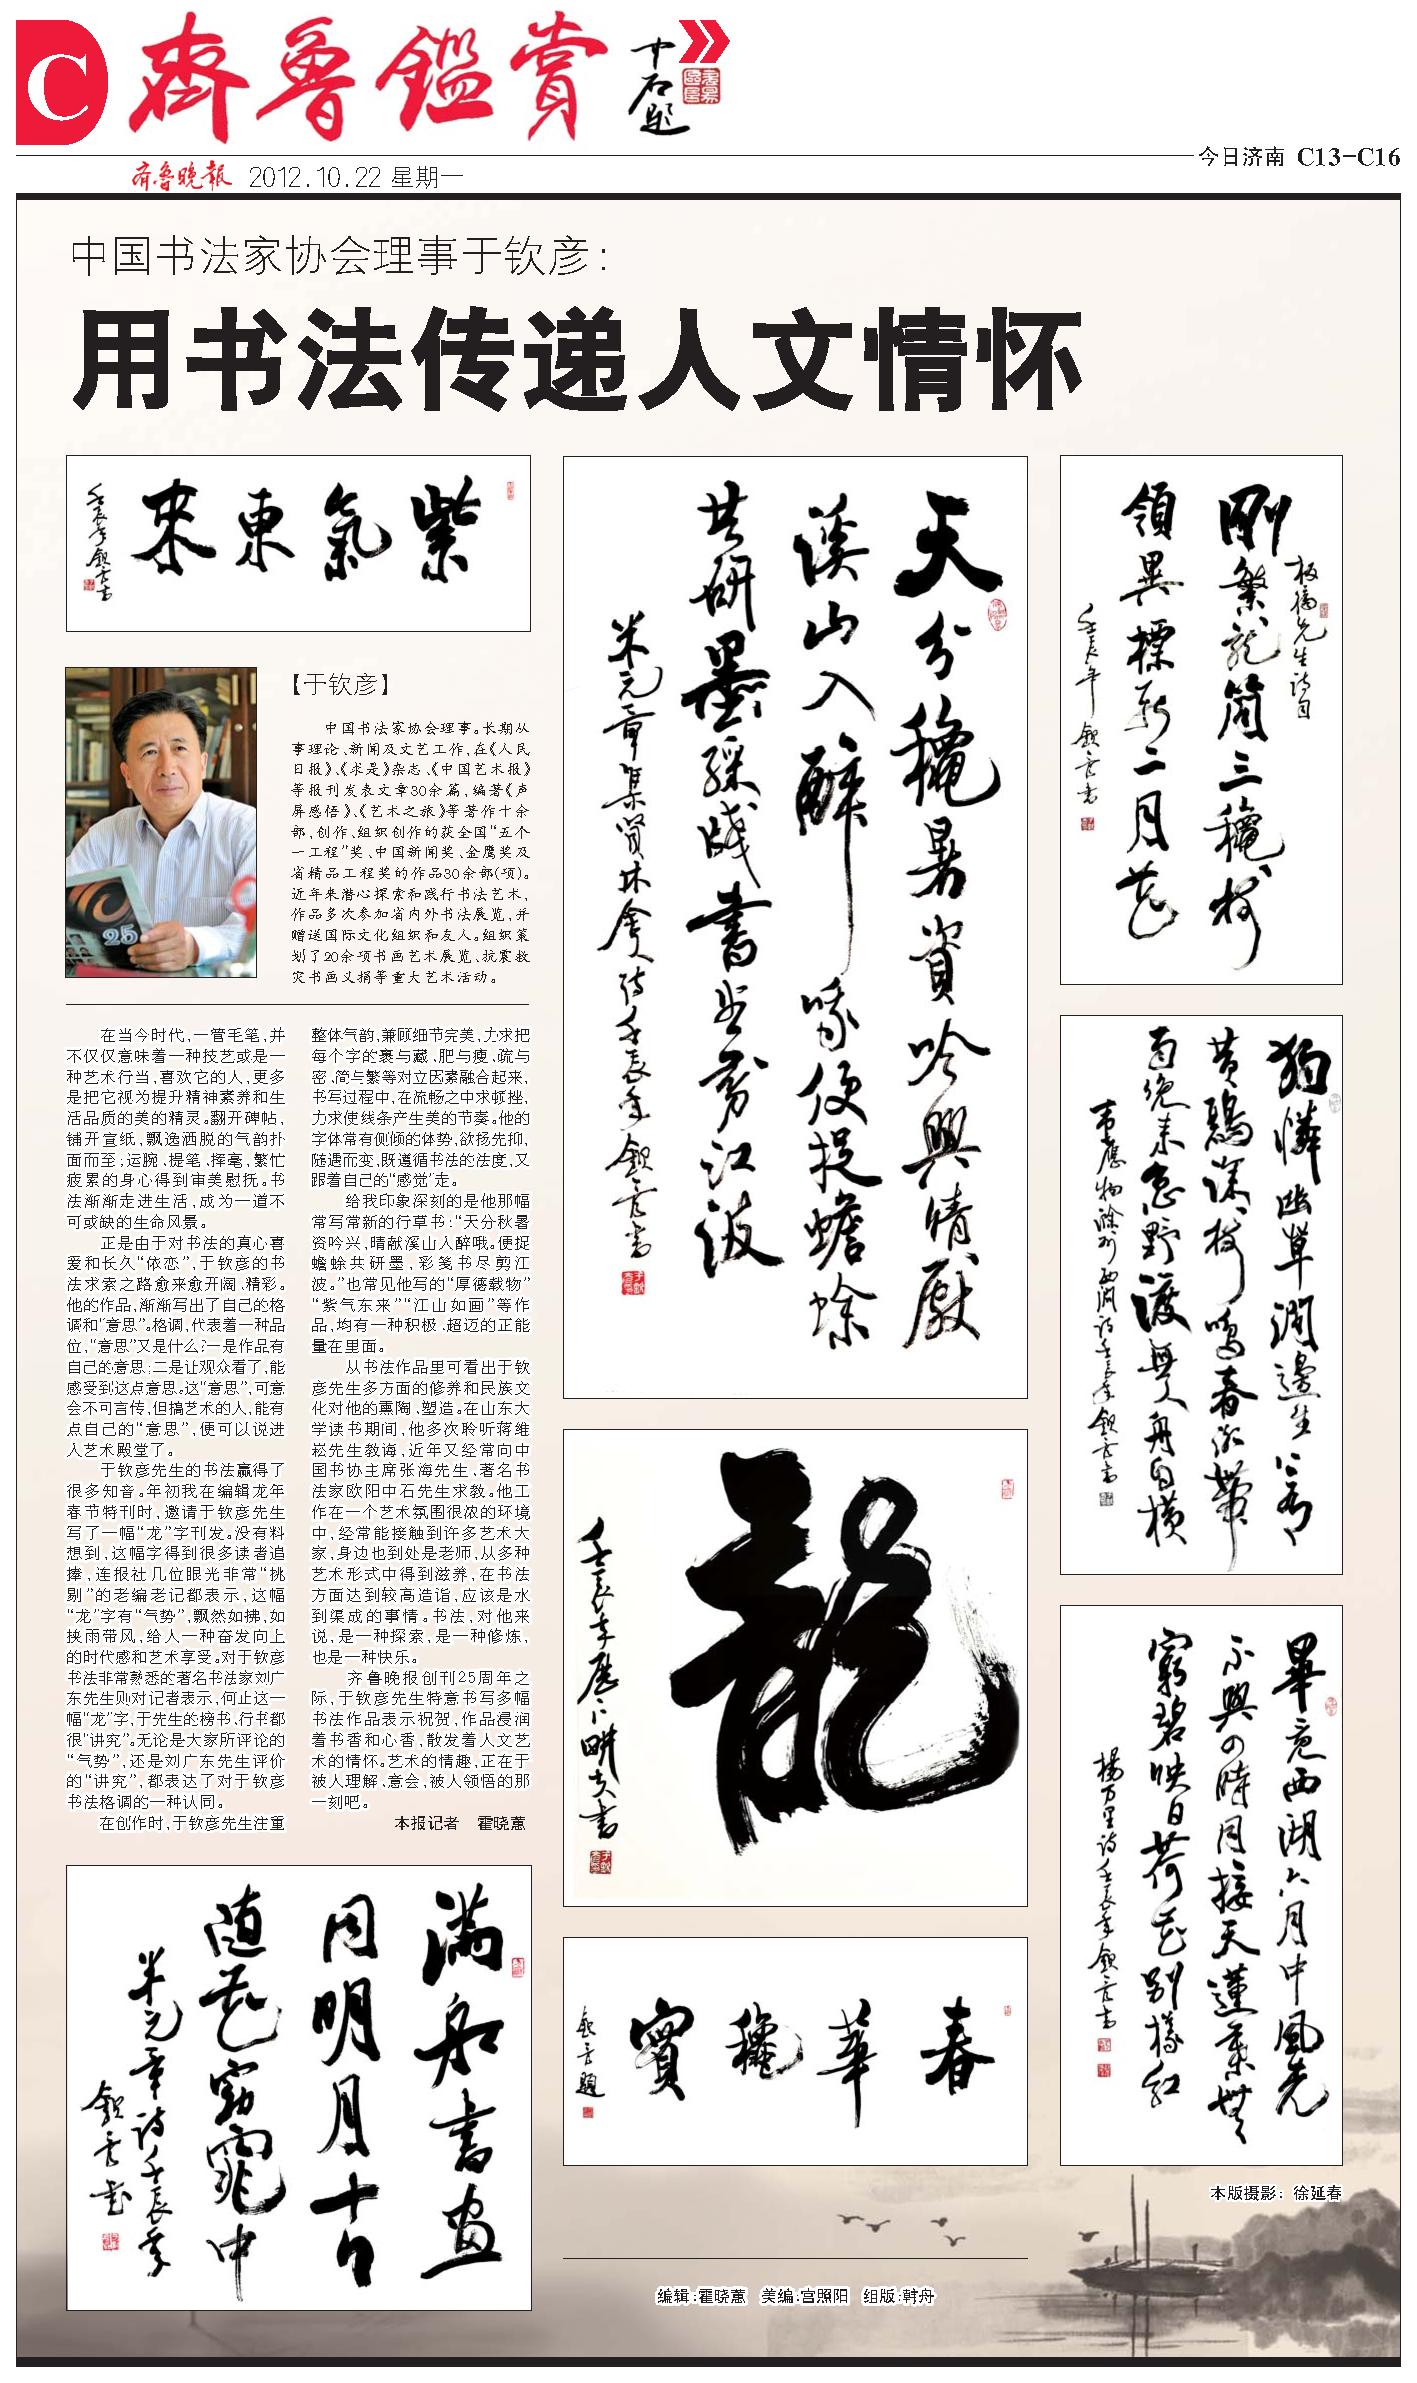 C
齊魯鑑賞
中石題
今日济南 C13-C16
齐鲁晚报 2012.10.22 星期一
中国书法家协会理事于钦彦：
用书法传递人文情怀
紫氣東來
壬辰年钦彦书
【于钦彦】
中国书法家协会理事。长期从
事理论、新闻及文艺工作，在《人民
日报》、《求是》杂志、《中国艺术报》
等报刊发表文章30余篇，编著《声
屏感悟》、《艺术之旅》等著作十余
部，创作、组织创作的获全国“五个
一工程”奖、中国新闻奖、金鹰奖及
省精品工程奖的作品30余部(项)。
近年来潜心探索和践行书法艺术，
作品多次参加省内外书法展览，并
赠送国际文化组织和友人。组织策
划了20余项书画艺术展览、抗震救
灾书画义捐等重大艺术活动。
25
在当今时代，一管毛笔，并
不仅仅意味着一种技艺或是一
种艺术行当，喜欢它的人，更多
是把它视为提升精神素养和生
活品质的美的精灵。翻开碑帖，
铺开宣纸，飘逸洒脱的气韵扑
面而至；运腕、提笔、挥毫，繁忙
疲累的身心得到审美慰抚。书
法渐渐走进生活，成为一道不
可或缺的生命风景。
正是由于对书法的真心喜
爱和长久“依恋”，于钦彦的书
法求索之路愈来愈开阔、精彩。
他的作品，渐渐写出了自己的格
调和“意思”。格调，代表着一种品
位，“意思”又是什么？一是作品有
自己的意思；二是让观众看了，能
感受到这点意思。这“意思”，可意
会不可言传，但搞艺术的人，能有
点自己的“意思”，便可以说进
入艺术殿堂了。
于钦彦先生的书法赢得了
很多知音。年初我在编辑龙年
春节特刊时，邀请于钦彦先生
写了一幅“龙”字刊发。没有料
想到，这幅字得到很多读者追
捧，连报社几位眼光非常“挑
剔”的老编老记都表示，这幅
“龙”字有“气势”，飘然如拂，如
挟雨带风，给人一种奋发向上
的时代感和艺术享受。对于钦彦
书法非常熟悉的著名书法家刘广
东先生则对记者表示，何止这一
幅“龙”字，于先生的榜书、行书都
很“讲究”。无论是大家所评论的
“气势”，还是刘广东先生评价
的“讲究”，都表达了对于钦彦
书法格调的一种认同。
在创作时，于钦彦先生注重
整体气韵，兼顾细节完美，力求把
每个字的裹与藏、肥与瘦、疏与
密、简与繁等对立因素融合起来，
书写过程中，在流畅之中求顿挫，
力求使线条产生美的节奏。他的
字体常有侧倾的体势，欲扬先抑，
随遇而变，既遵循书法的法度，又
跟着自己的“感觉”走。
给我印象深刻的是他那幅
常写常新的行草书：“天分秋暑
资吟兴，晴献溪山入醉哦。便捉
蟾蜍共研墨，彩笺书尽剪江
波。”也常见他写的“厚德载物”
“紫气东来”“江山如画”等作
品，均有一种积极、超迈的正能
量在里面。
从书法作品里可看出于钦
彦先生多方面的修养和民族文
化对他的熏陶、塑造。在山东大
学读书期间，他多次聆听蒋维
崧先生教诲，近年又经常向中
国书协主席张海先生、著名书
法家欧阳中石先生求教。他工
作在一个艺术氛围很浓的环境
中，经常能接触到许多艺术大
家，身边也到处是老师，从多种
艺术形式中得到滋养，在书法
方面达到较高造诣，应该是水
到渠成的事情。书法，对他来
说，是一种探索，是一种修炼，
也是一种快乐。
齐鲁晚报创刊25周年之
际，于钦彦先生特意书写多幅
书法作品表示祝贺，作品浸润
着书香和心香，散发着人文艺
术的情怀。艺术的情趣，正在于
被人理解、意会，被人领悟的那
一刻吧。
本报记者 霍晓蕙
天分穐暑資吟興情獻
溪山入醉哦便捉蟾蜍
共研墨綵牋書盡剪江波
米元章集賢林舍人詩壬辰年钦彦书
板橋先生詩句
刪繁就简三穐樹
領異標新二月花
壬辰年钦彦书
獨憐幽草澗邊生上有
黄鸝深樹鳴春潮帶
雨晚来急野渡無人舟自横
韦應物滁州西涧诗壬辰年钦彦书
龍
畢竟西湖六月中風光
不與四時同接天蓮葉無
窮碧映日荷花别樣红
楊万里诗壬辰年钦彦书
滿船書畫
同明月十日
随花窈窕中
米元章詩壬辰年
钦彦书
春華穐實
钦彦題
本版摄影：徐延春
编辑：霍晓蕙 美编：宫照阳 组版：韩舟